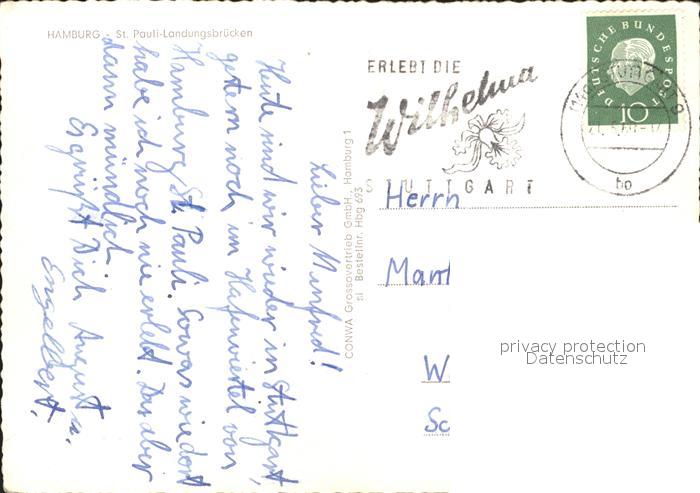 HAMBURG - St. Pauli-Landungsbrücken
Lieber Manfred!
Heute sind wir wieder in Stuttgart,
gestern noch im Hafenviertel von
Hamburg St. Pauli. Sowas wie dort
habe ich noch nie erlebt. Das aber
dann mündlich.
Es grüßt Dich August u.
Engelbert.
CONWA Grossovertrieb GmbH., Hamburg 1
Bestellnr. Hbg 693
ERLEBT DIE
Wilhelma
STUTTGART
DEUTSCHE BUNDESPOST
10
bp
Herrn
Man
W
Sc
privacy protection
Datenschutz